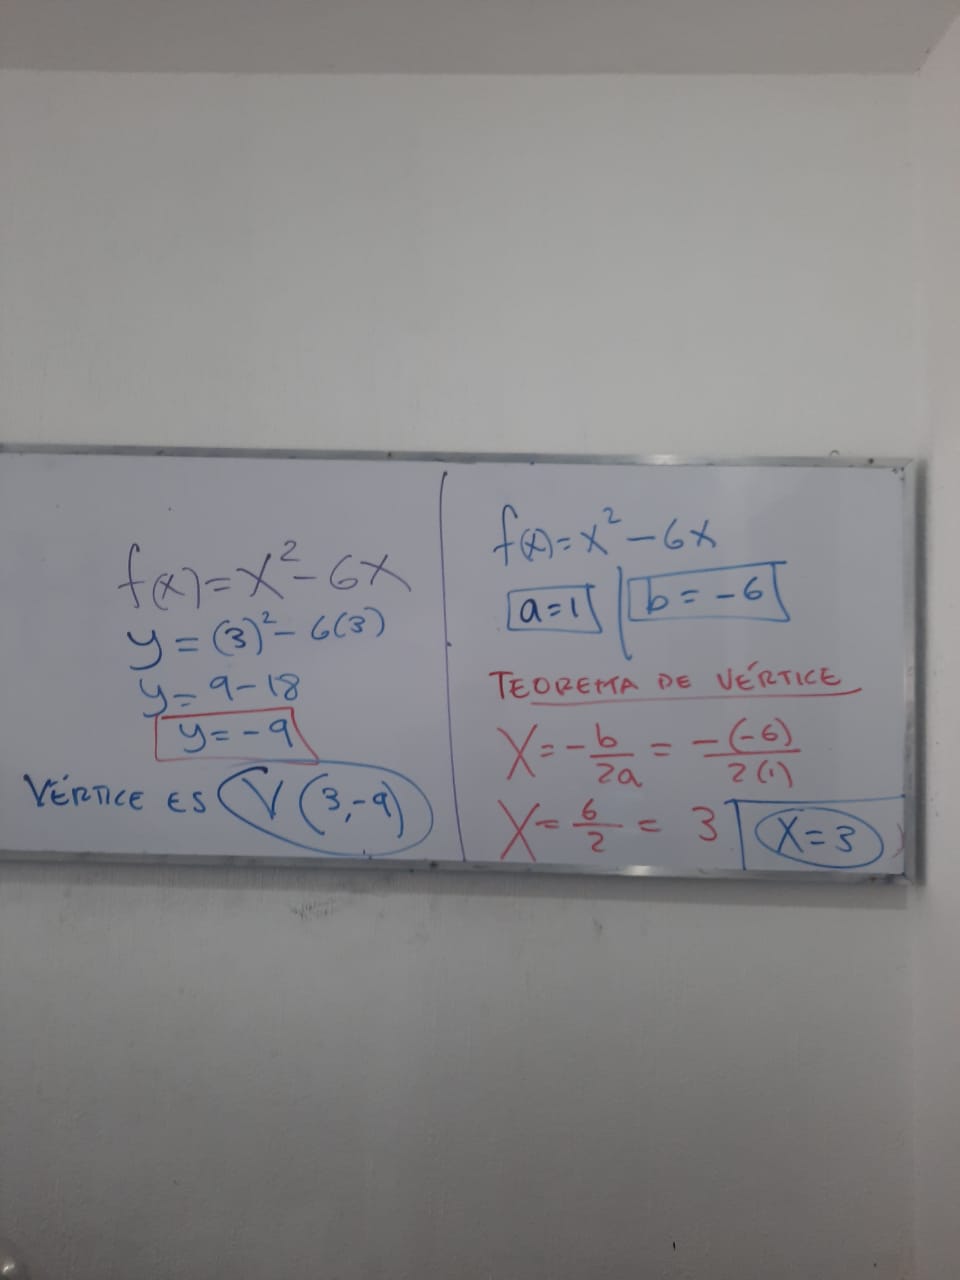 f(x)=x²-6x
y=(3)²-6(3)
y=9-18
y=-9
VÉRTICE ES V(3,-9)
f(x)=x²-6x
a=1 b=-6
TEOREMA DE VÉRTICE
X=-b/2a=-(-6)/2(1)
X=6/2=3 X=3